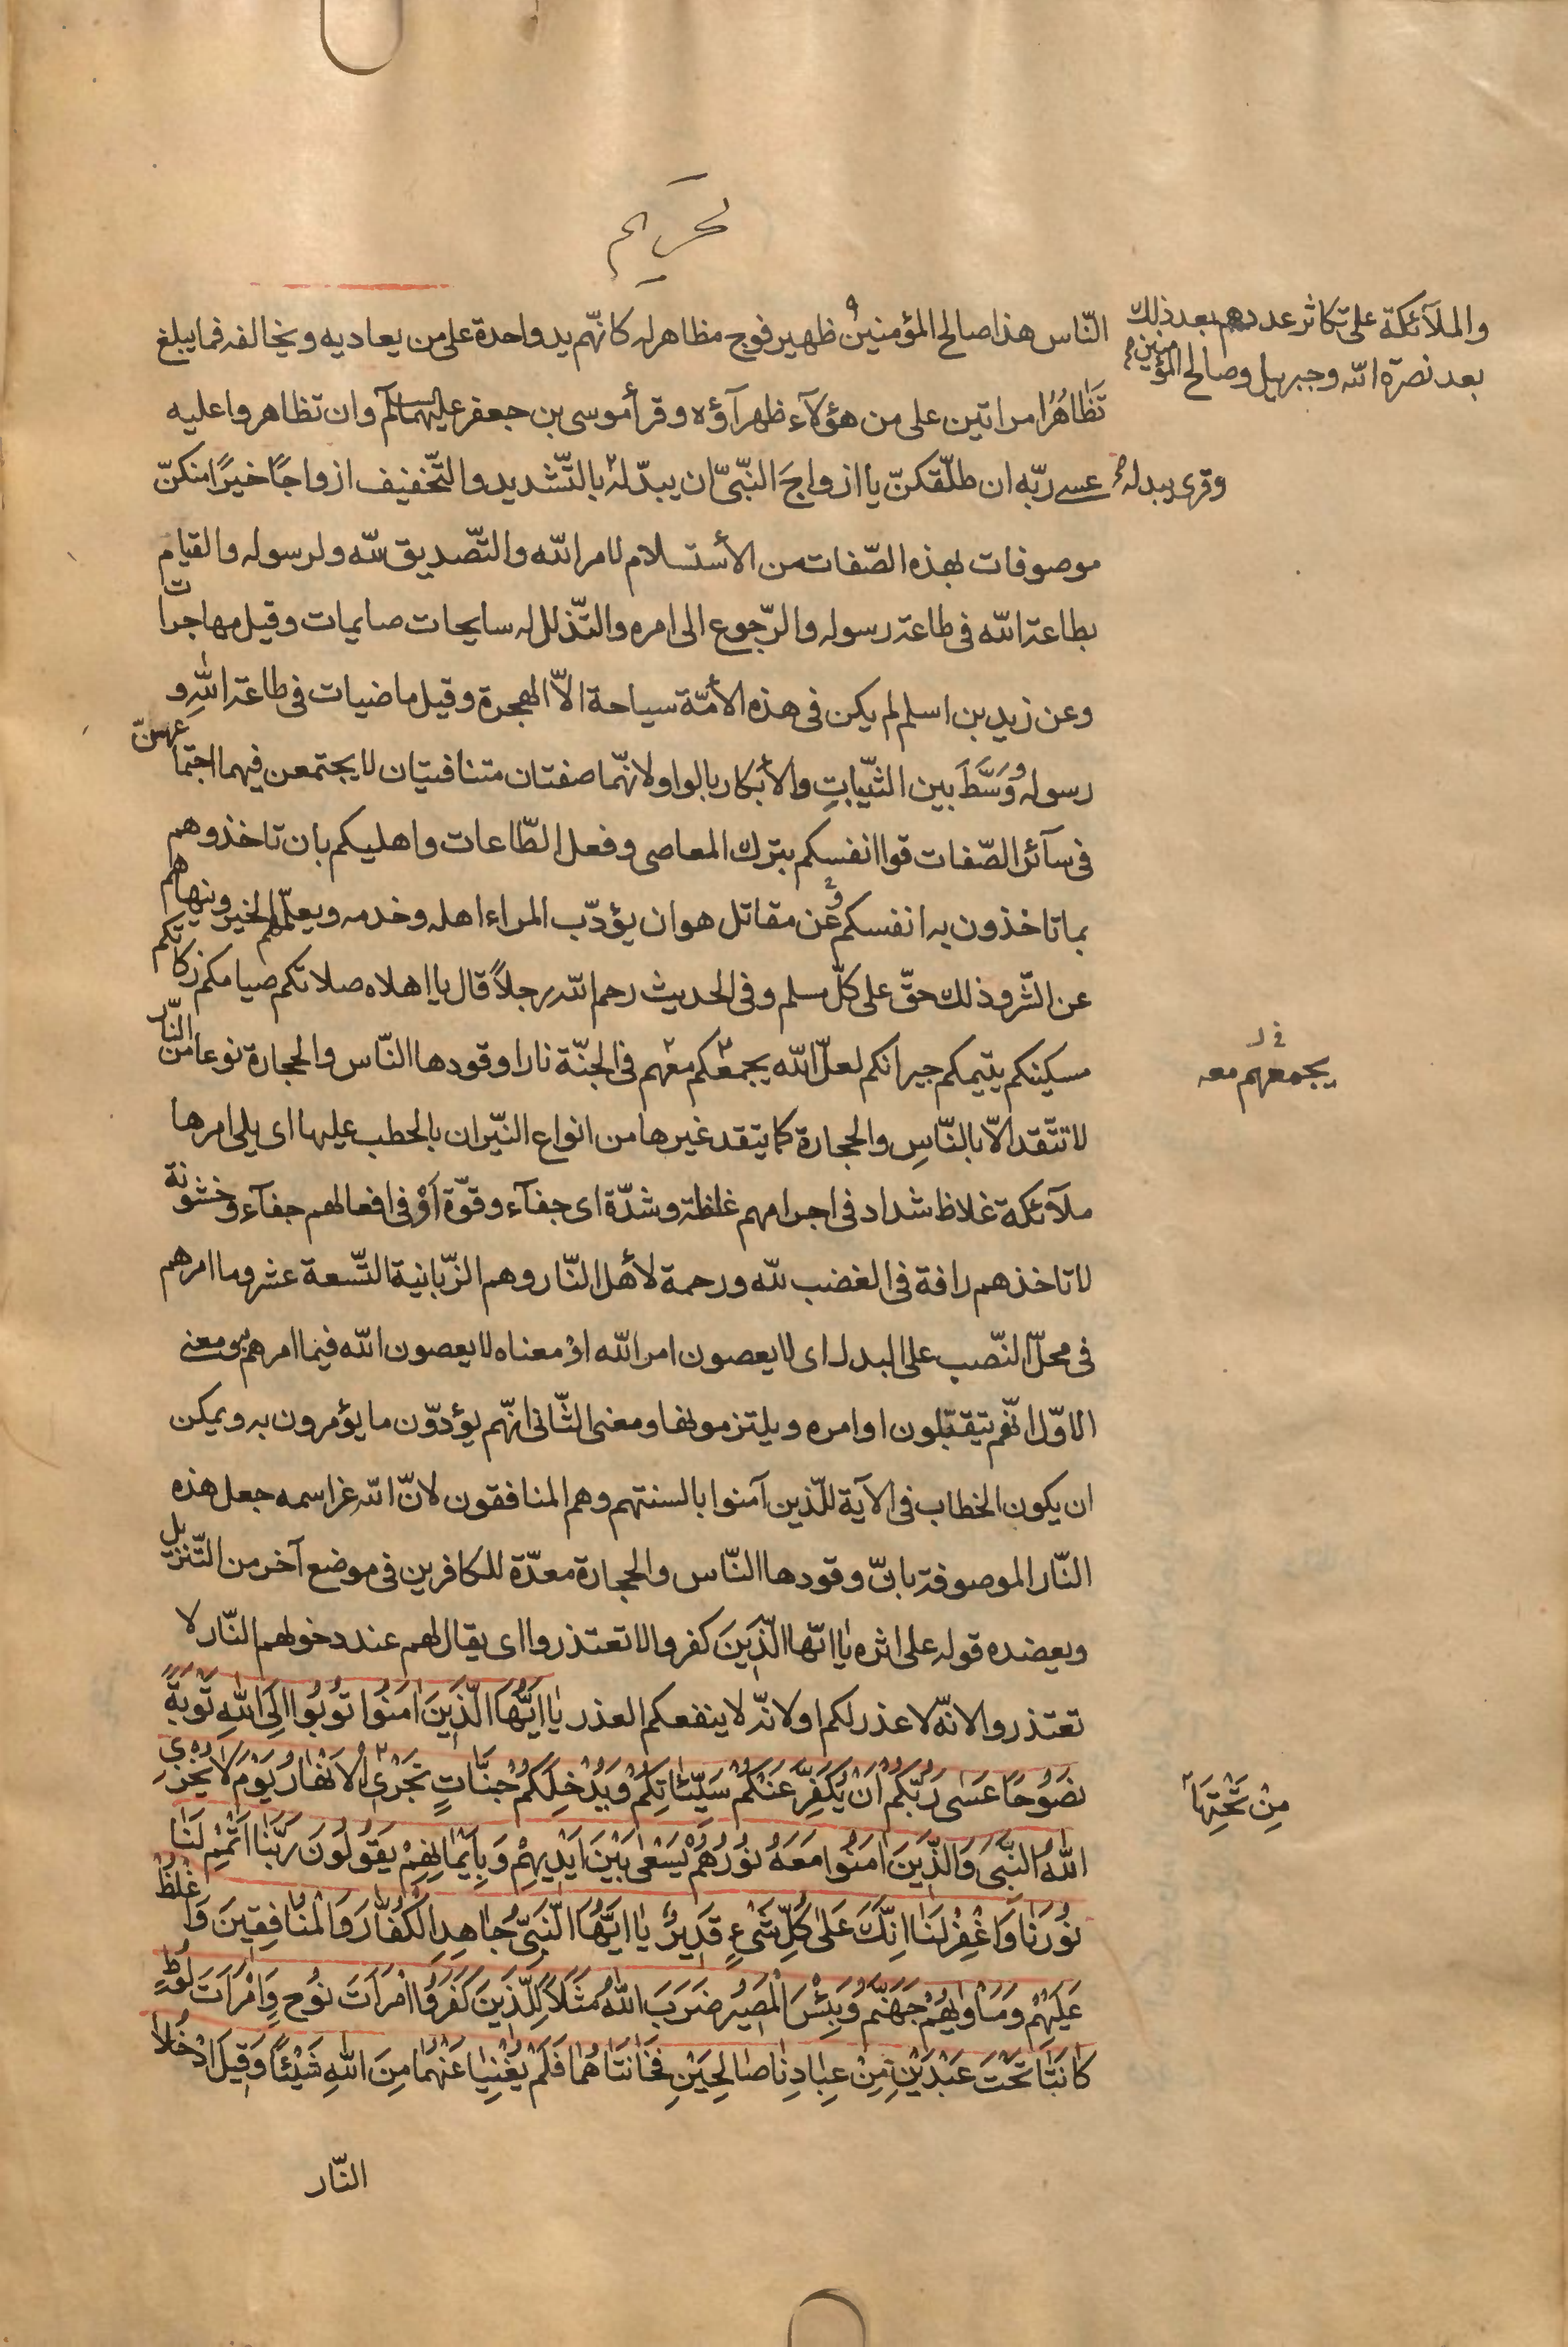 تحريم
والملآئكة على تكاثر عددهم بعد ذلك
بعد نصرة الله وجبريل وصالح المؤمنين
النّاس هذا صالح المؤمنين ظهير فوج مظاهر له كانّهم يد واحدة على من يعاديه ويخالفه فما يبلغ
تَظاهُرُ امراتين على من هؤلآء ظهرآؤه وقرأ موسى بن جعفر عليهما السلم وان تظاهروا عليه
وقرى يبدله
عسى ربّه ان طلّقكنّ يا ازواجَ النّبىّ ان يبدّله بالتّشديد والتّخفيف ازواجًا خيرًا منكنّ
موصوفات بهذه الصّفات من الأستسلام لامر الله والتّصديق لله ولرسوله والقيام
بطاعة الله فى طاعة رسوله والرّجوع الى امره والتّذلل له سايحات صايمات وقيل مهاجرات
وعن زيد بن اسلم لم يكن فى هذه الأمّة سياحة الاّ الهجرة وقيل ماضيات فى طاعة اللهِ و
رسوله وَوَسَّطَ بين الثّيّباتِ والأبكار بالواو لانهّما صفتان متنافيتان لا يجتمعن فيهما اجتماعهنّ
فى سآئر الصّفات قوا انفسكم بترك المعاصى وفعل الطّاعات واهليكم بان تاخذوهم
بما تاخذون به انفسكم وعن مقاتل هو ان يؤدّب المراء اهله وخدمه ويعلّمهم الخير وينهاهم
عن الشّر وذلك حقّ على كلّ مسلم وفى الحديث رحم الله رجلاً قال يا اهلاه صلاتكم صيامكم زكاتكم
مسكينكم يتيمكم جيرانكم لعلّ الله يجمعكم معهم فى الجنّة نارا وقودها النّاس والحجارة نوعا من النّار
يجمعهم معه
لا تتّقد الاّ بالنّاسِ والحجارة كما يتقد غيرها من انواع النيّران بالحطب عليها اى يلى امرها
ملآئكة غلاظ شداد فى اجرامهم غلظة وشدّة اى جفآء وقوّة اَوْ فى افعالهم جفآء وخشونة
لا تاخذهم رافة فى الغضب لله ورحمة لأهل النّار وهم الزّبانية التّسعة عشر وما امرهم
فى محلّ النّصب على البدل اى لا يعصون امر الله اوْ معناه لا يعصون الله فيما امرهم به ومعنى
الاوّل انّهم يتقبّلون اوامره ويلتزمونها ومعنى الثّانى انهّم يؤدّون ما يؤمرون به ويمكن
ان يكون الخطاب فى الآية للّذين آمنوا بالسنتهم وهم المنافقون لانّ الله عزاسمه جعل هذه
النّار الموصوفة بانّ وقودها النّاس والحجارة معدّة للكافرين فى موضع آخر من التّنزيل
ويعضده قوله على اثره يا ايّها الّذِينَ كفروا لا تعتذروا اى يقال لهم عند دخولهم النّار لا
تعتذروا لانّه لا عذر لكم او لانّه لا ينفعكم العذر يا اَيُّهَا الَّذِينَ امَنُوا تُوبُوا اِلَى اللهِ تَوْبَةً
نَصُوحًا عَسى رَبُّكُمْ اَنْ يُكَفِّرَ عَنْكُمْ سَيِّئاتِكُمْ وَيُدْخِلَكُمْ جَنَّاتٍ تَجْرى الْاَنْهارُ يَوْمَ لا يُخْزِى
مِنْ تَحْتِهَا
اللهُ النَّبِىَّ وَالَّذِينَ امَنُوا مَعَهُ نُورُهُمْ يَسْعى بَيْنَ اَيْدِيهِمْ وَبِاَيْمانِهِمْ يَقُولُونَ رَبَّنا اَتْمِمْ لَنا
نُورَنا وَاغْفِرْ لَنا اِنَّكَ عَلى كُلِّ شَىْءٍ قَدِيرٌ يا اَيُّهَا النَّبِىُّ جاهِدِ الْكُفَّارَ وَالْمُنافِقِينَ وَاغْلُظْ
عَلَيْهِمْ وَمَأويهُمْ جَهَنَّمُ وَبِئْسَ الْمَصِيرُ ضَرَبَ اللهُ مَثَلاً لِلَّذِينَ كَفَرُوا امْرَاَتَ نُوحٍ وَامْرَاَتَ لُوطٍ
كانَتا تَحْتَ عَبْدَيْنِ مِنْ عِبادِنا صالِحَيْنِ فَخانَتاهُما فَلَمْ يُغْنِيا عَنْهُما مِنَ اللهِ شَيْئًا وَقِيلَ ادْخُلا
النّار